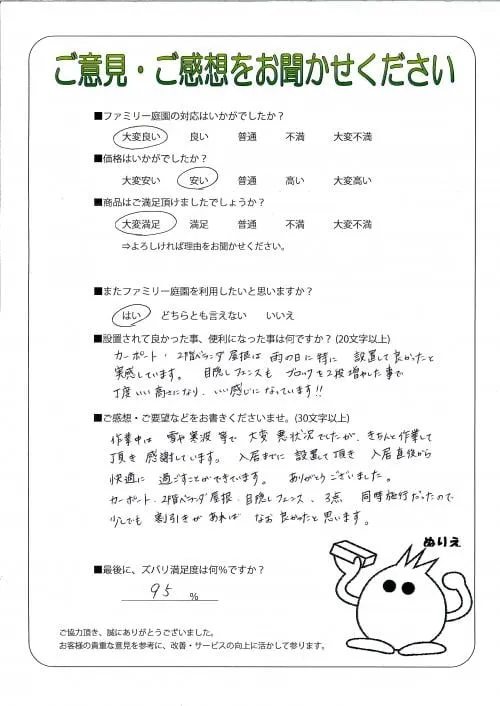 ご意見・ご感想をお聞かせください
■ファミリー庭園の対応はいかがでしたか？
大変良い 良い 普通 不満 大変不満
■価格はいかがでしたか？
大変安い 安い 普通 高い 大変高い
■商品はご満足頂けましたでしょうか？
大変満足 満足 普通 不満 大変不満
⇒よろしければ理由をお聞かせください。
■またファミリー庭園を利用したいと思いますか？
はい どちらとも言えない いいえ
■設置されて良かった事、便利になった事は何ですか？(20文字以上)
カーポート・2階ベランダ屋根は 雨の日に特に 設置して良かったと
実感しています。 目隠しフェンスも ブロックを2段増やした事で
丁度いい高さになり、いい感じになっています!!
■ご感想・ご要望などをお書きくださいませ。(30文字以上)
作業中は 雪や寒波 等で 大変 悪状況でしたが、きちんと作業して
頂き 感謝しています。 入居までに 設置して頂き 入居直後から
快適に 過ごすことができています。 ありがとうございました。
カーポート・2階ベランダ屋根・目隠しフェンス、3点 同時施行だったので
少しでも 割引きがあれば なお良かったと思います。
ぬりえ
■最後に、ズバリ満足度は何％ですか？
95 %
ご協力頂き、誠にありがとうございました。
お客様の貴重な意見を参考に、改善・サービスの向上に活かして参ります。